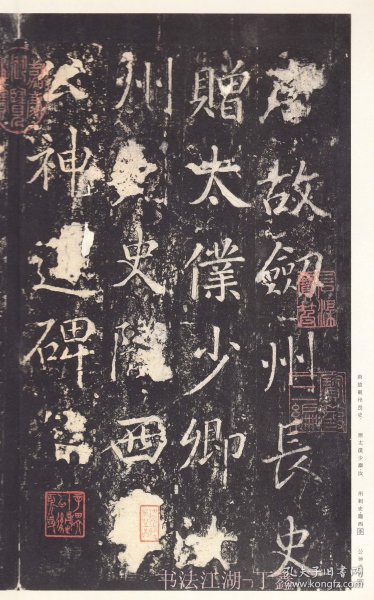 唐故劒州長史
贈太僕少卿汝
州史隴西
公神道碑
唐故劍州長史 贈太僕少卿汝 州刺史隴西李 公神
书法江湖
孔夫子旧书网